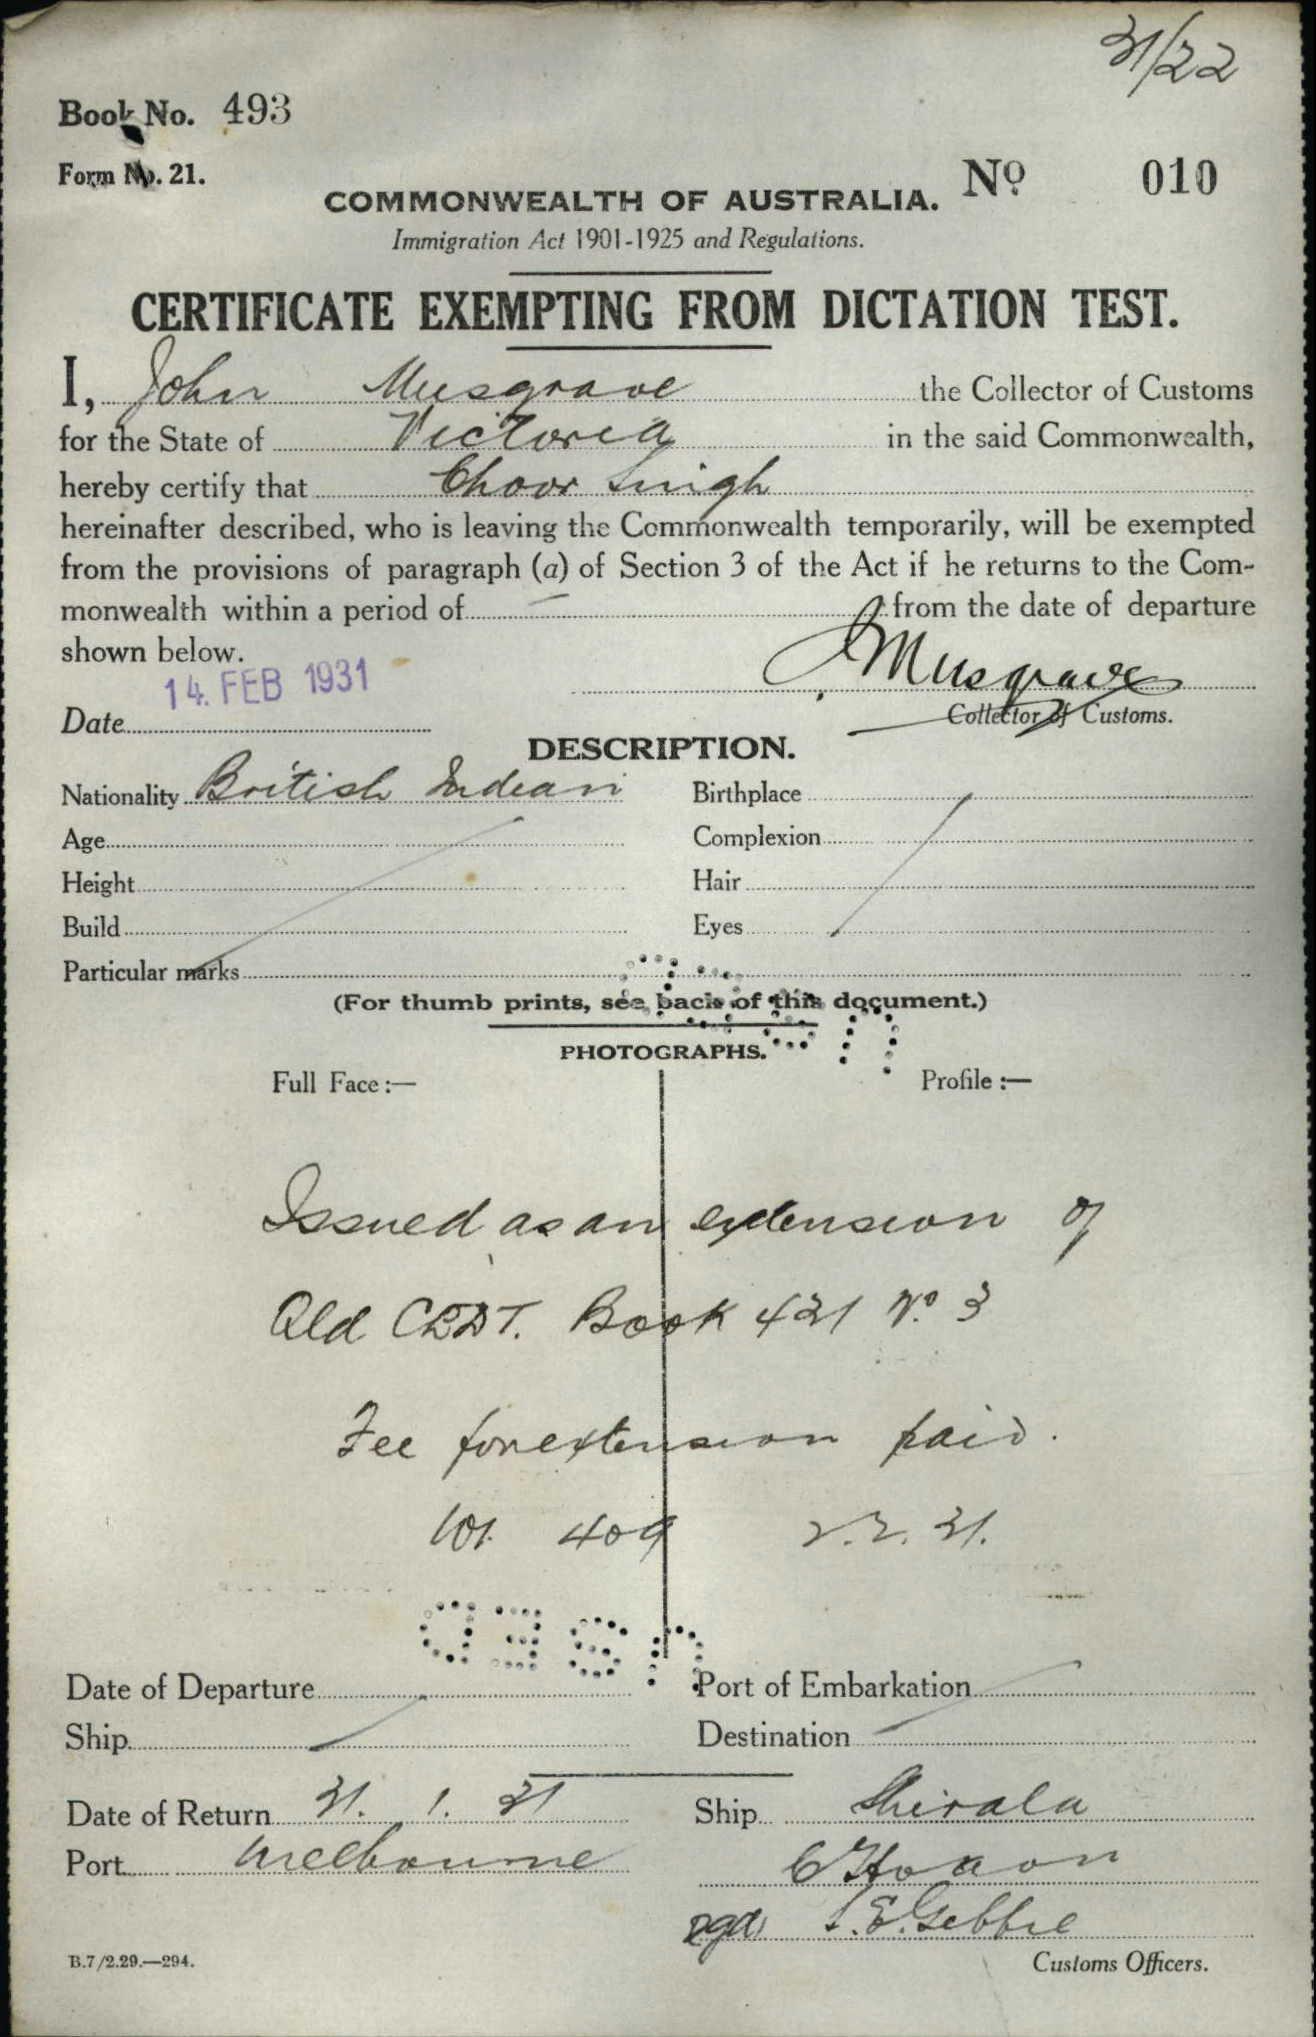 31/22
Book No. 493
Form No. 21.
No. 010
COMMONWEALTH OF AUSTRALIA.
Immigration Act 1901-1925 and Regulations.
CERTIFICATE EXEMPTING FROM DICTATION TEST.
I, John Musgrave the Collector of Customs
for the State of Victoria in the said Commonwealth,
hereby certify that Choor Singh
hereinafter described, who is leaving the Commonwealth temporarily, will be exempted
from the provisions of paragraph (a) of Section 3 of the Act if he returns to the Com-
monwealth within a period of — from the date of departure
shown below.
14. FEB 1931
J Musgrave
Date
Collector of Customs.
DESCRIPTION.
Nationality British Indian Birthplace
Age Complexion
Height Hair
Build Eyes
Particular marks
(For thumb prints, see back of this document.)
PHOTOGRAPHS.
Full Face :— Profile :—
Issued as an extension of
Qld CEDT. Book 421 No. 3
Fee for extension paid.
409 2.2.31.
USED
Date of Departure Port of Embarkation
Ship Destination
Date of Return 31. 1. 31 Ship Shirala
Port Melbourne
S.E. Gebbie
B.7/2.29.—294. Customs Officers.